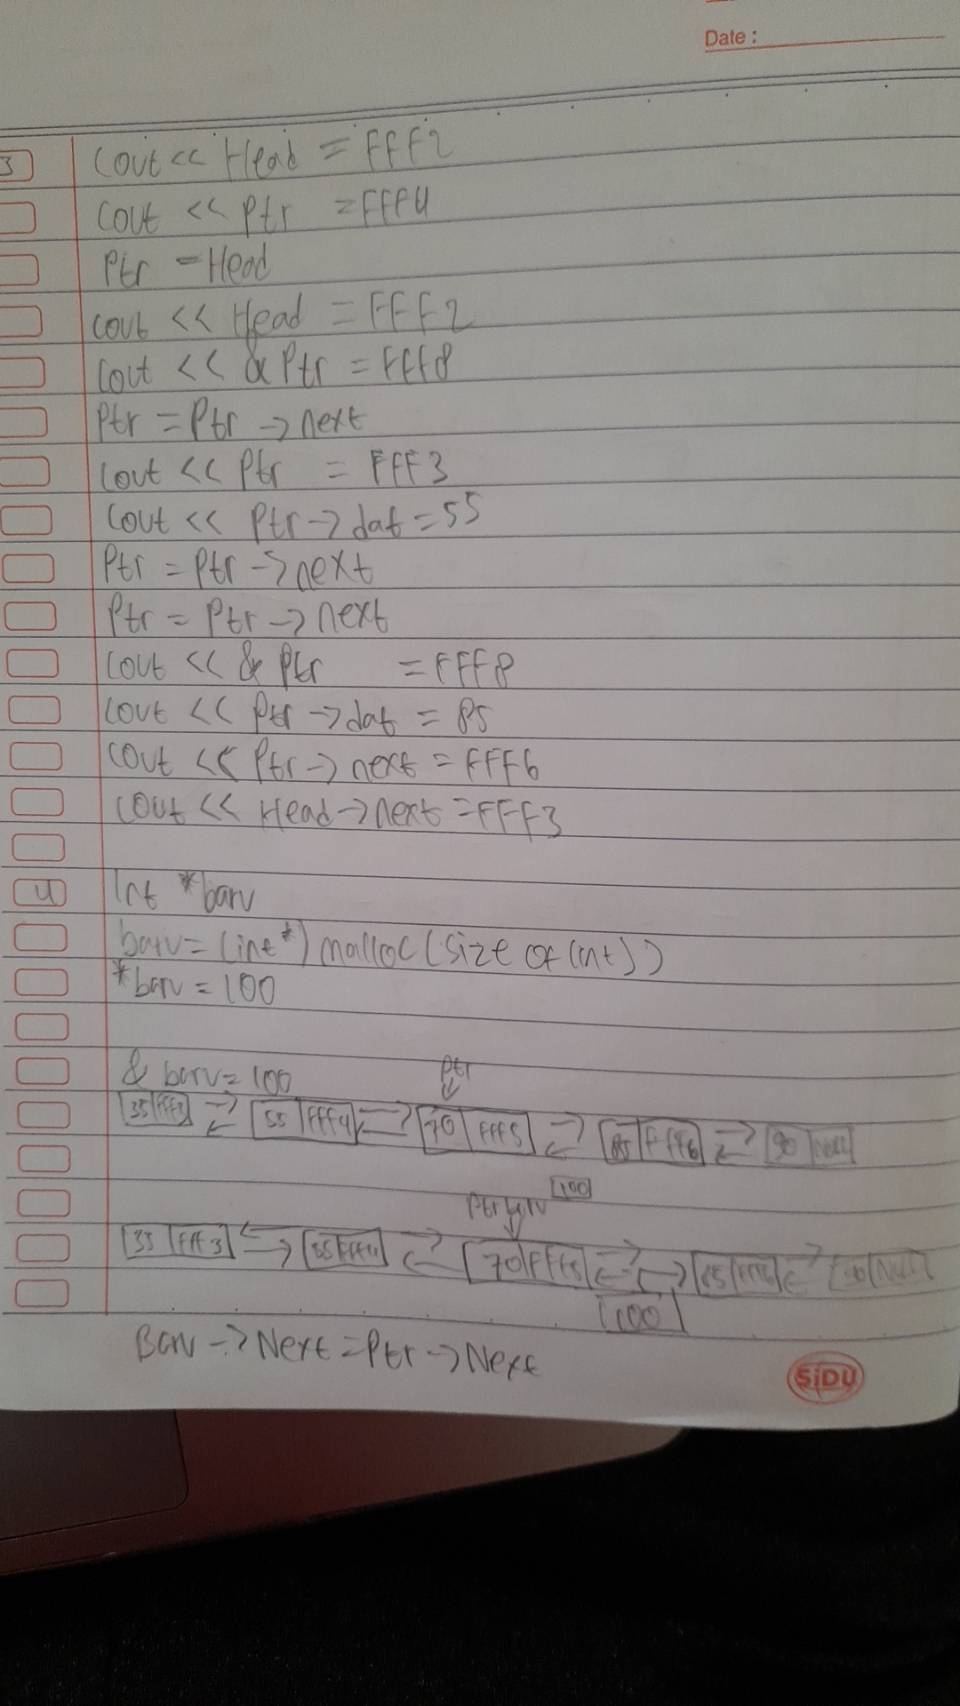 Date :
3 Cout << Head = FFF2
Cout << Ptr = FFF4
Ptr = Head
Cout << Head = FFF2
Cout << & Ptr = FFF8
Ptr = Ptr -> next
Cout << Ptr = FFF3
Cout << Ptr -> dat = 55
Ptr = Ptr -> next
Ptr = Ptr -> next
Cout << & Ptr = FFF8
Cout << Ptr -> dat = 85
Cout << Ptr -> next = FFF6
Cout << Head -> next = FFF3
4 Int *baru
baru = (int*) malloc (size of (int))
*baru = 100
& baru = 100
Ptr
35 FFF3 55 FFF4 70 FFF5 85 FFF6 90 Null
100
Ptr
35 FFF3 55 FFF4 70 FFF5 85 FFF6 90 Null
100
Baru -> Next = Ptr -> Next
SIDU